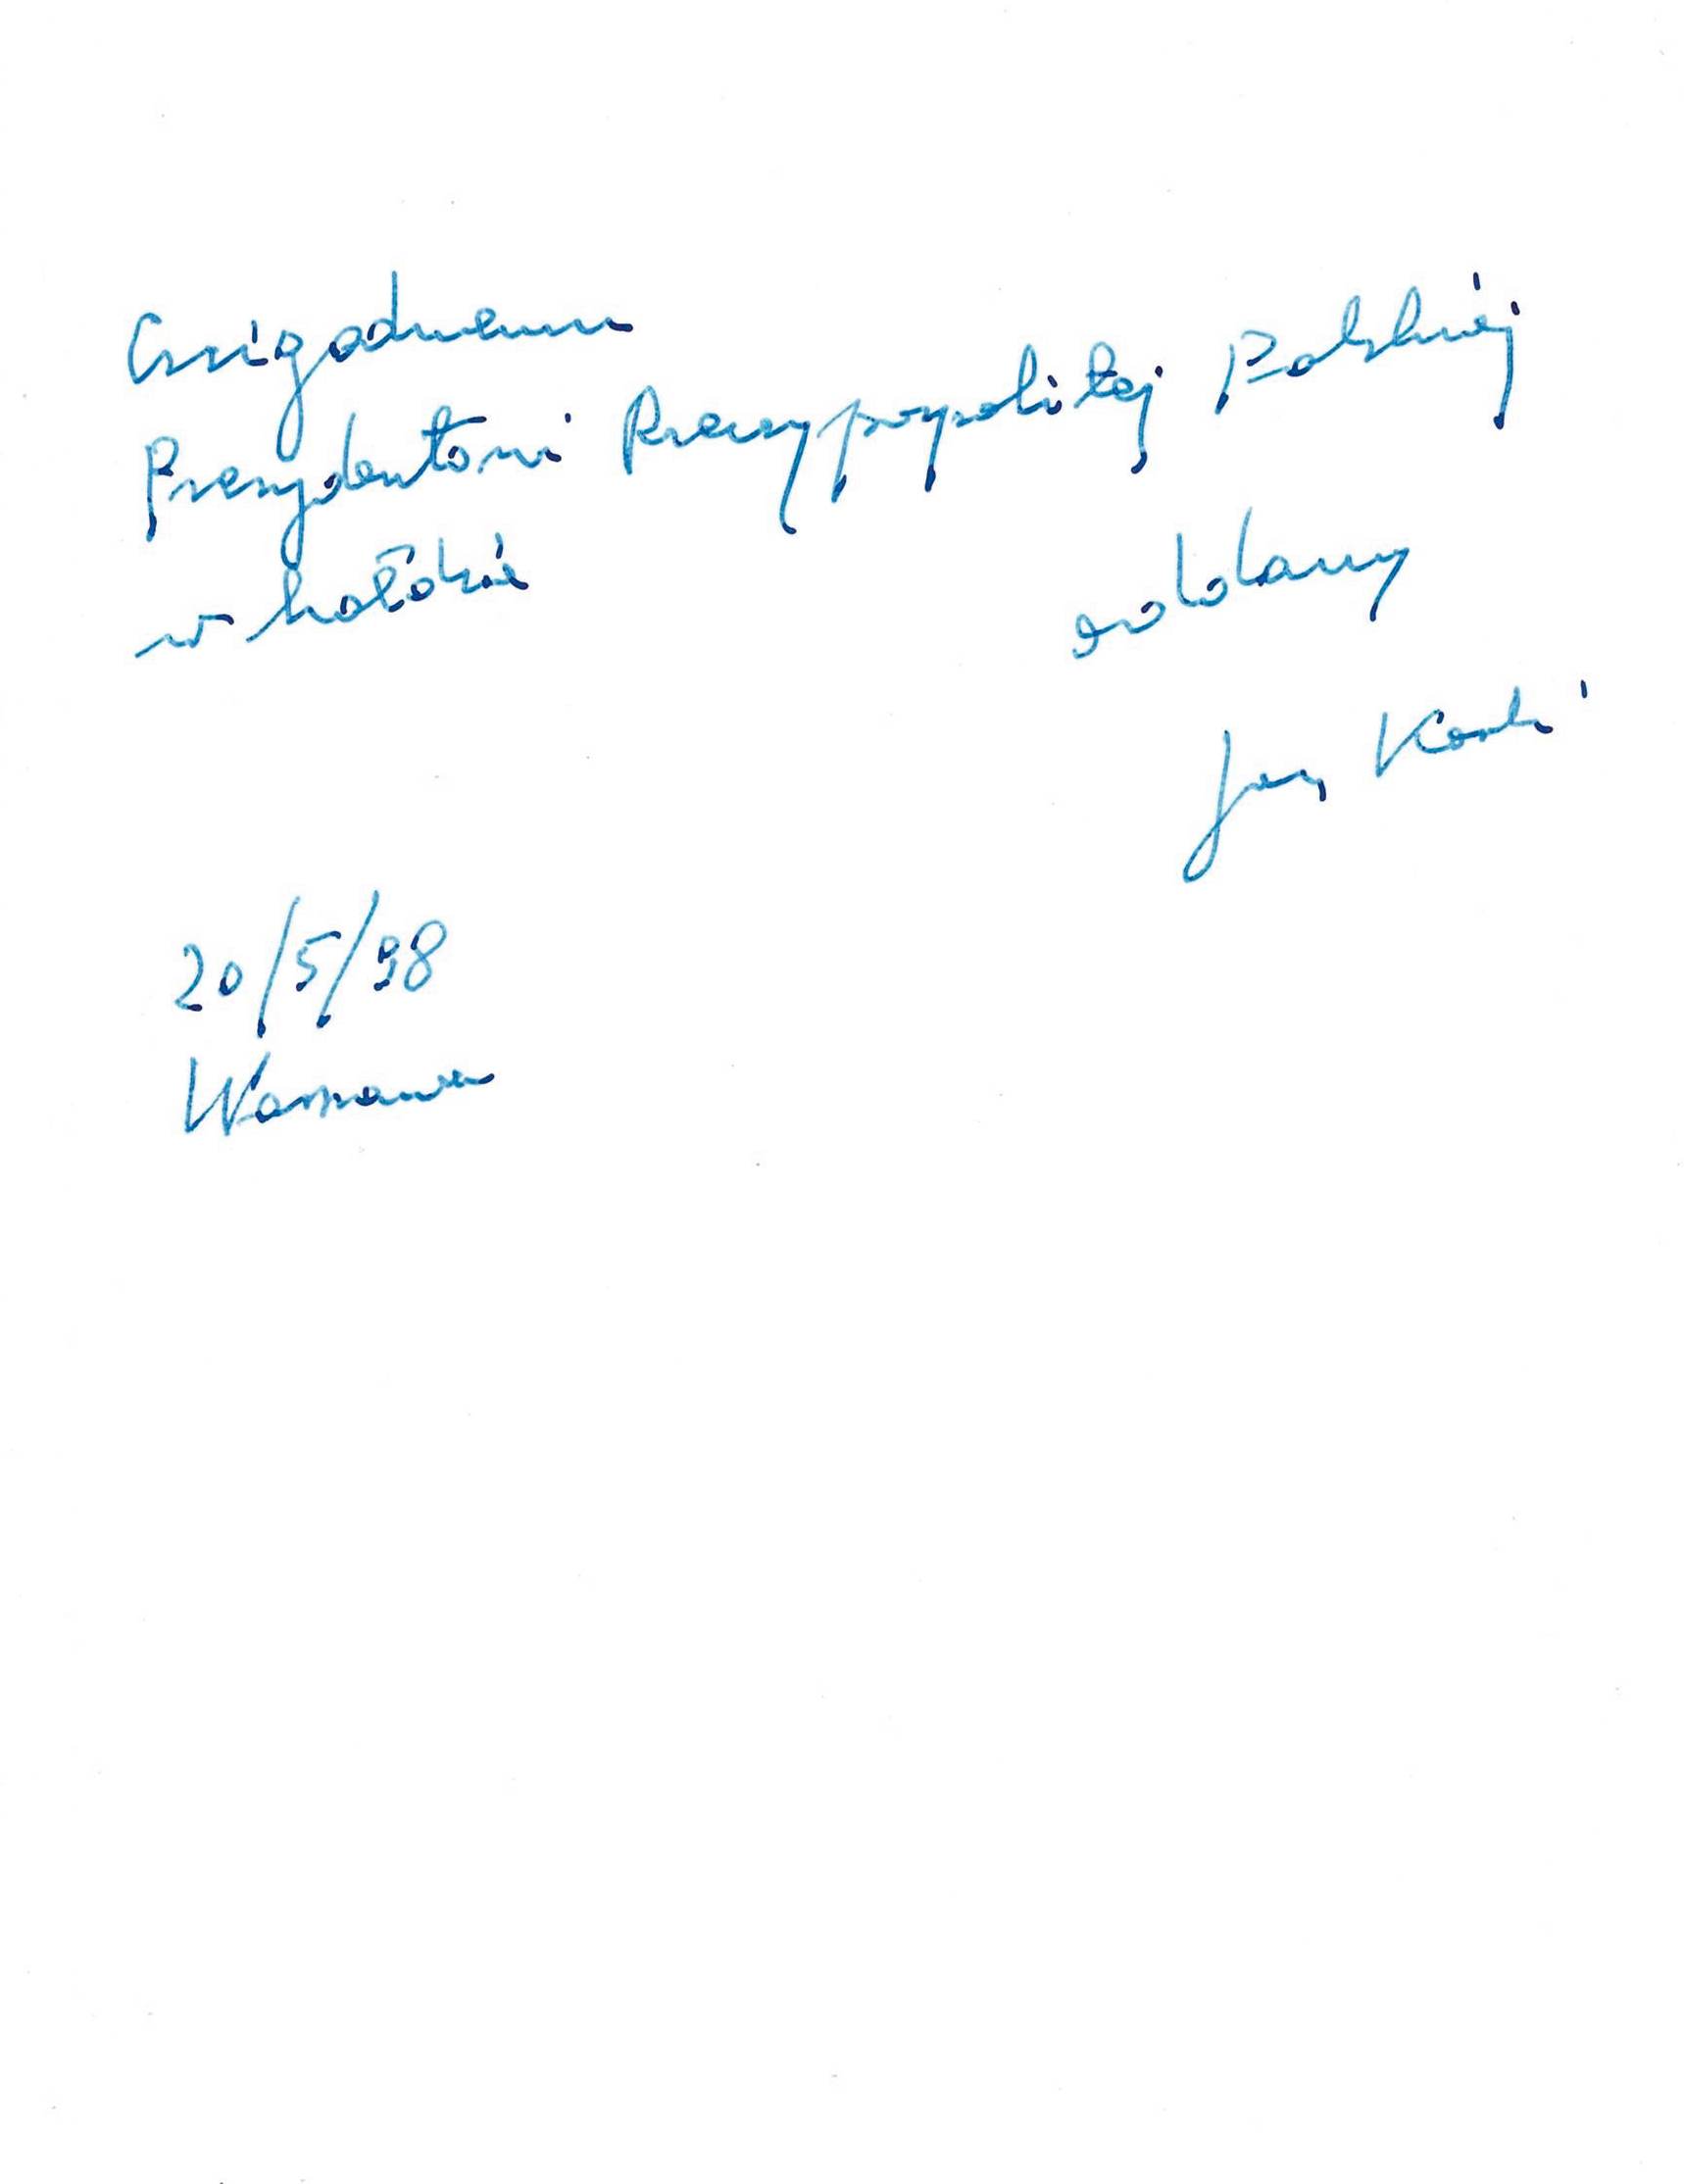 Czcigodnemu
Prezydentowi Rzeczypospolitej Polskiej
w hołdzie
oddany
Jan Karski
20/5/98
Warszawa